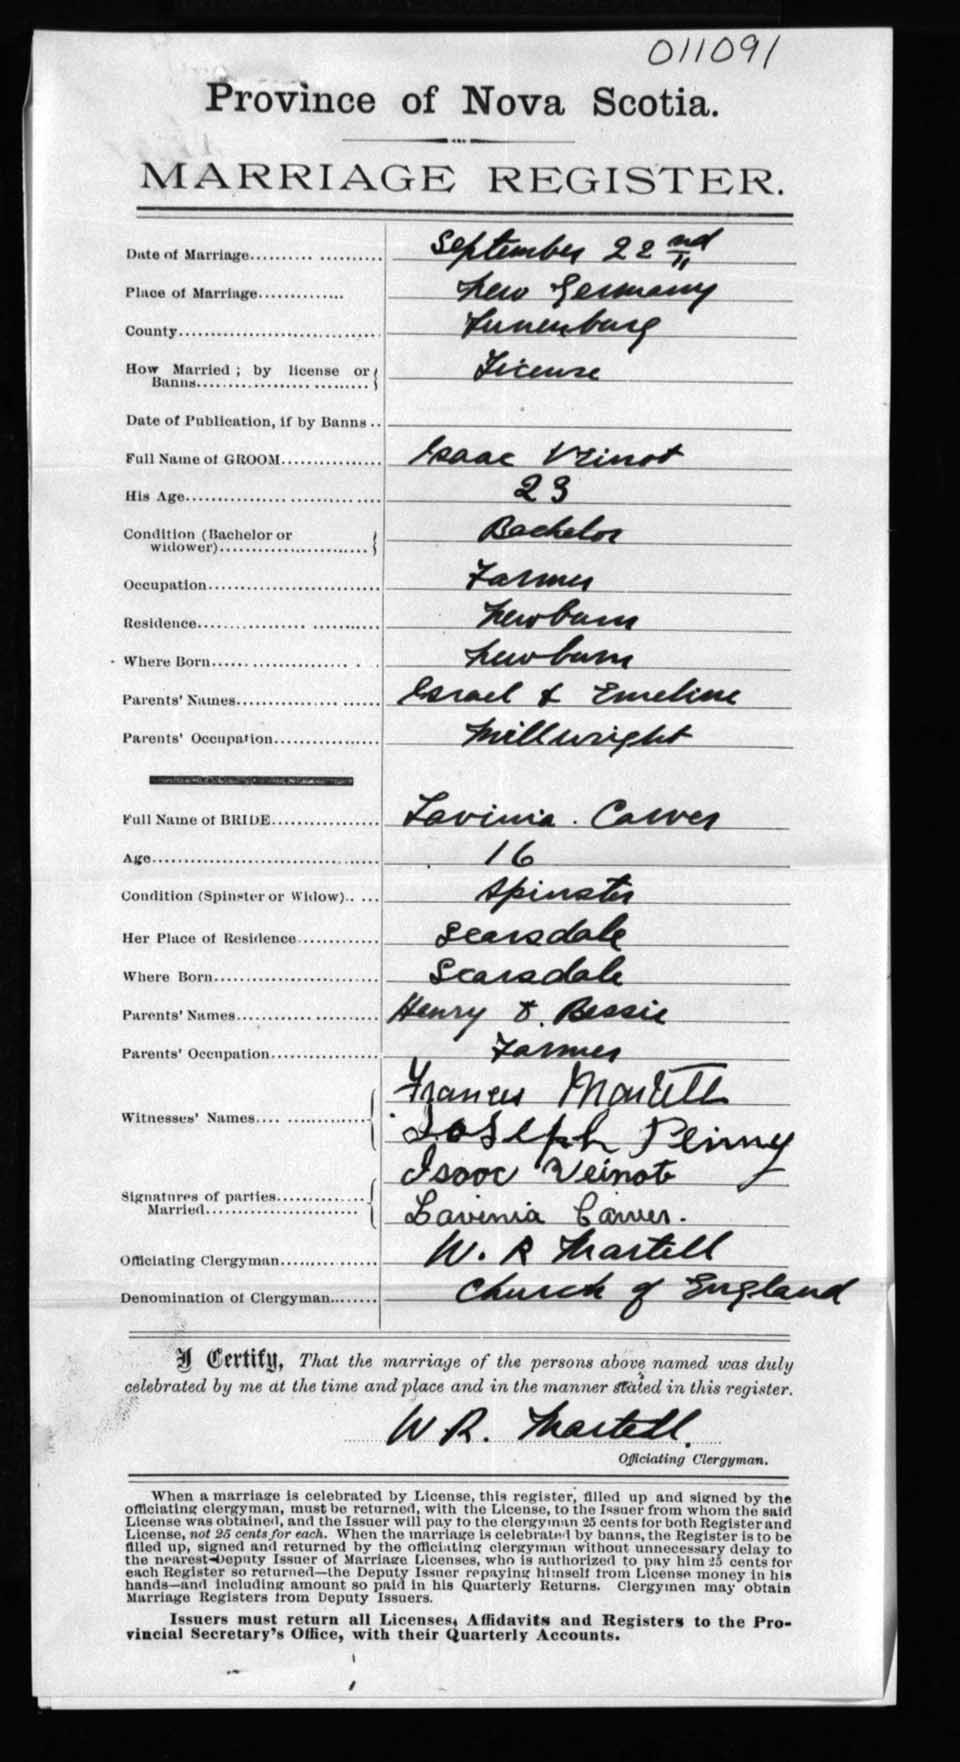 011091
Province of Nova Scotia.
MARRIAGE REGISTER.
Date of Marriage.......... ........... September 22nd
Place of Marriage.............. New Germany
County................................ Lunenburg
How Married ; by license or
Banns................................ License
Date of Publication, if by Banns ..
Full Name of GROOM................ Isaac Veinot
His Age................................ 23
Condition (Bachelor or
widower)........................ Bachelor
Occupation............................ Farmer
Residence................. ........... Newburn
Where Born...................... . . Newburn
Parents' Names................. ...... Israel & Emeline
Parents' Occupation................. Millwright
Full Name of BRIDE................. Lavinia Carver
Age.................................... 16
Condition (Spinster or Widow).. ... Spinster
Her Place of Residence............. Scarsdale
Where Born........................... Scarsdale
Parents' Names............ .......... Henry & Bessie
Parents' Occupation................. Farmer
Witnesses' Names.... .............. Frances Martell
Joseph Penny
Signatures of parties............... Isaac Veinot
Married......................... Lavinia Carver.
Officiating Clergyman......... ...... W. R Martell
Denomination of Clergyman........ Church of England
I Certify, That the marriage of the persons above named was duly
celebrated by me at the time and place and in the manner stated in this register.
W R. Martell.
Officiating Clergyman.
When a marriage is celebrated by License, this register, filled up and signed by the
officiating clergyman, must be returned, with the License, to the Issuer from whom the said
License was obtained, and the Issuer will pay to the clergyman 25 cents for both Register and
License, not 25 cents for each. When the marriage is celebrated by banns, the Register is to be
filled up, signed and returned by the officiating clergyman without unnecessary delay to
the nearest Deputy Issuer of Marriage Licenses, who is authorized to pay him 25 cents for
each Register so returned—the Deputy Issuer repaying himself from License money in his
hands—and including amount so paid in his Quarterly Returns. Clergymen may obtain
Marriage Registers from Deputy Issuers.
Issuers must return all Licenses, Affidavits and Registers to the Pro-
vincial Secretary's Office, with their Quarterly Accounts.